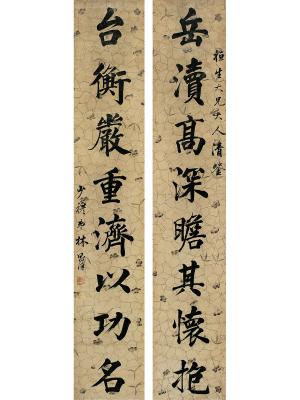 桓生大兄大人清鑒
岳瀆髙深瞻其懷抱
台衡嚴重濟以功名
少穆弟林則徐